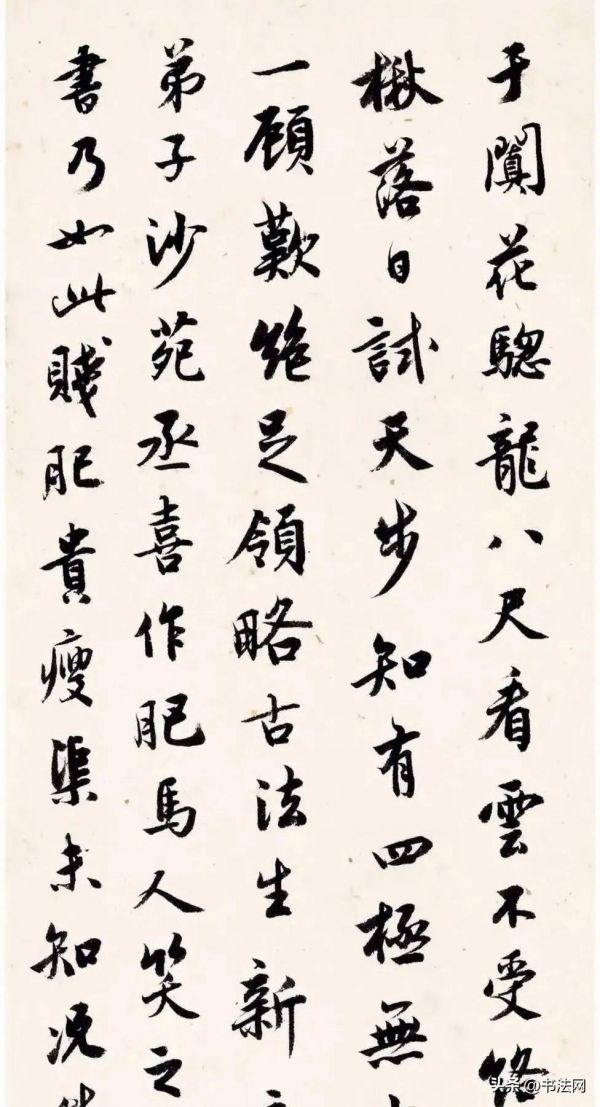 于闐花驄龍八尺看雲不受絡
楸落日試天步知有四極無
一顧歎絕足領略古法生新
弟子沙苑丞喜作肥馬人笑之
書乃如此賤肥貴瘦渠未知況
头条 @书法网